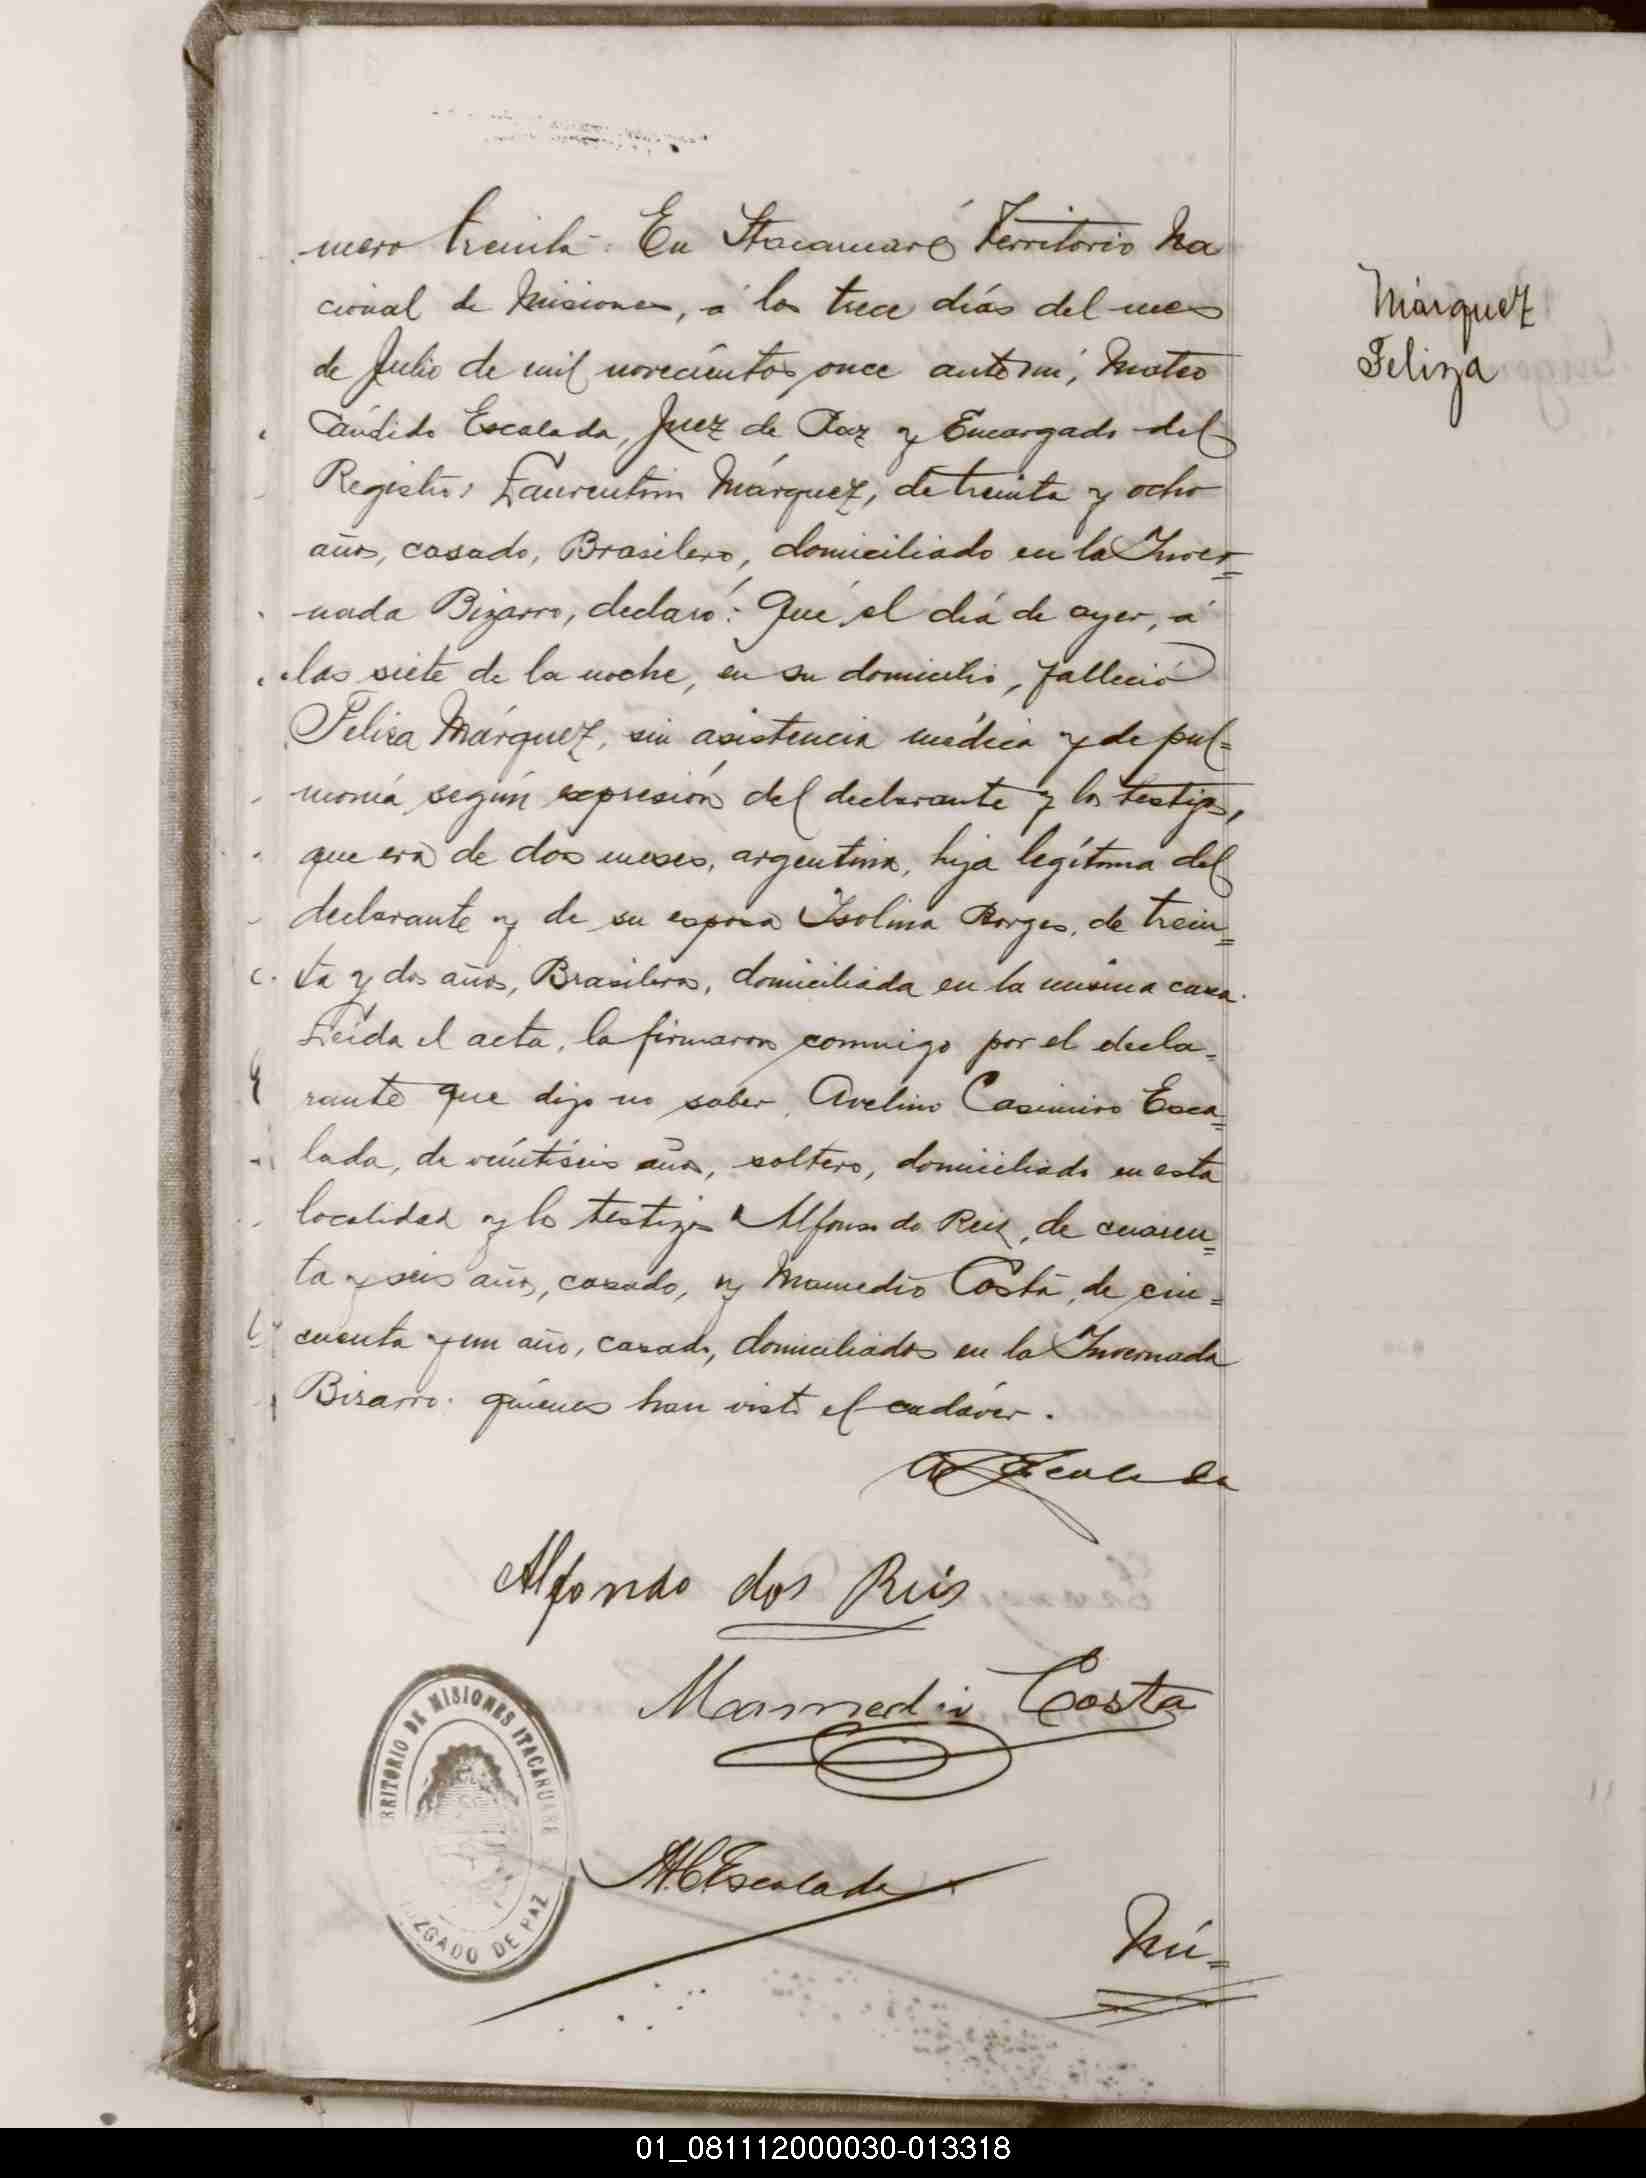 mero treinta: En Itacaruaré Territorio Na
cional de Misiones, á los trece días del mes
de Julio de mil novecientos once ante mí, Mateo
Cándido Escalada, Juez de Paz y Encargado del
Registro, Laurentino Márquez, de treinta y ocho
años, casado, Brasilero, domiciliado en la Inver=
nada Bizarro, declaró: Que el día de ayer, á
las siete de la noche, en su domicilio, falleció
Feliza Márquez, sin asistencia médica y de pul=
monía según expresión del declarante y los testigos,
que era de dos meses, argentina, hija legítima del
declarante y de su esposa Isolina Borges, de trein=
ta y dos años, Brasilera, domiciliada en la misma casa.
Leída el acta, la firmaron conmigo por el decla=
rante que dijo no saber, Avelino Casimiro Esca=
lada, de veintiseis años, soltero, domiciliado en esta
localidad y los testigos Alfonso do Reis, de cuaren=
ta y seis años, casado, y Mamedio Costa, de cin=
cuenta y un año, casado, domiciliados en la Invernada
Bizarro. quienes han visto el cadáver.
Márquez
Feliza
Escalada
Alfondo dos Reis
Mamedio Costa
M.C.Escalada
RRITORIO DE MISIONES ITACARUARE
UZGADO DE PAZ
Nú=
01_081112000030-013318